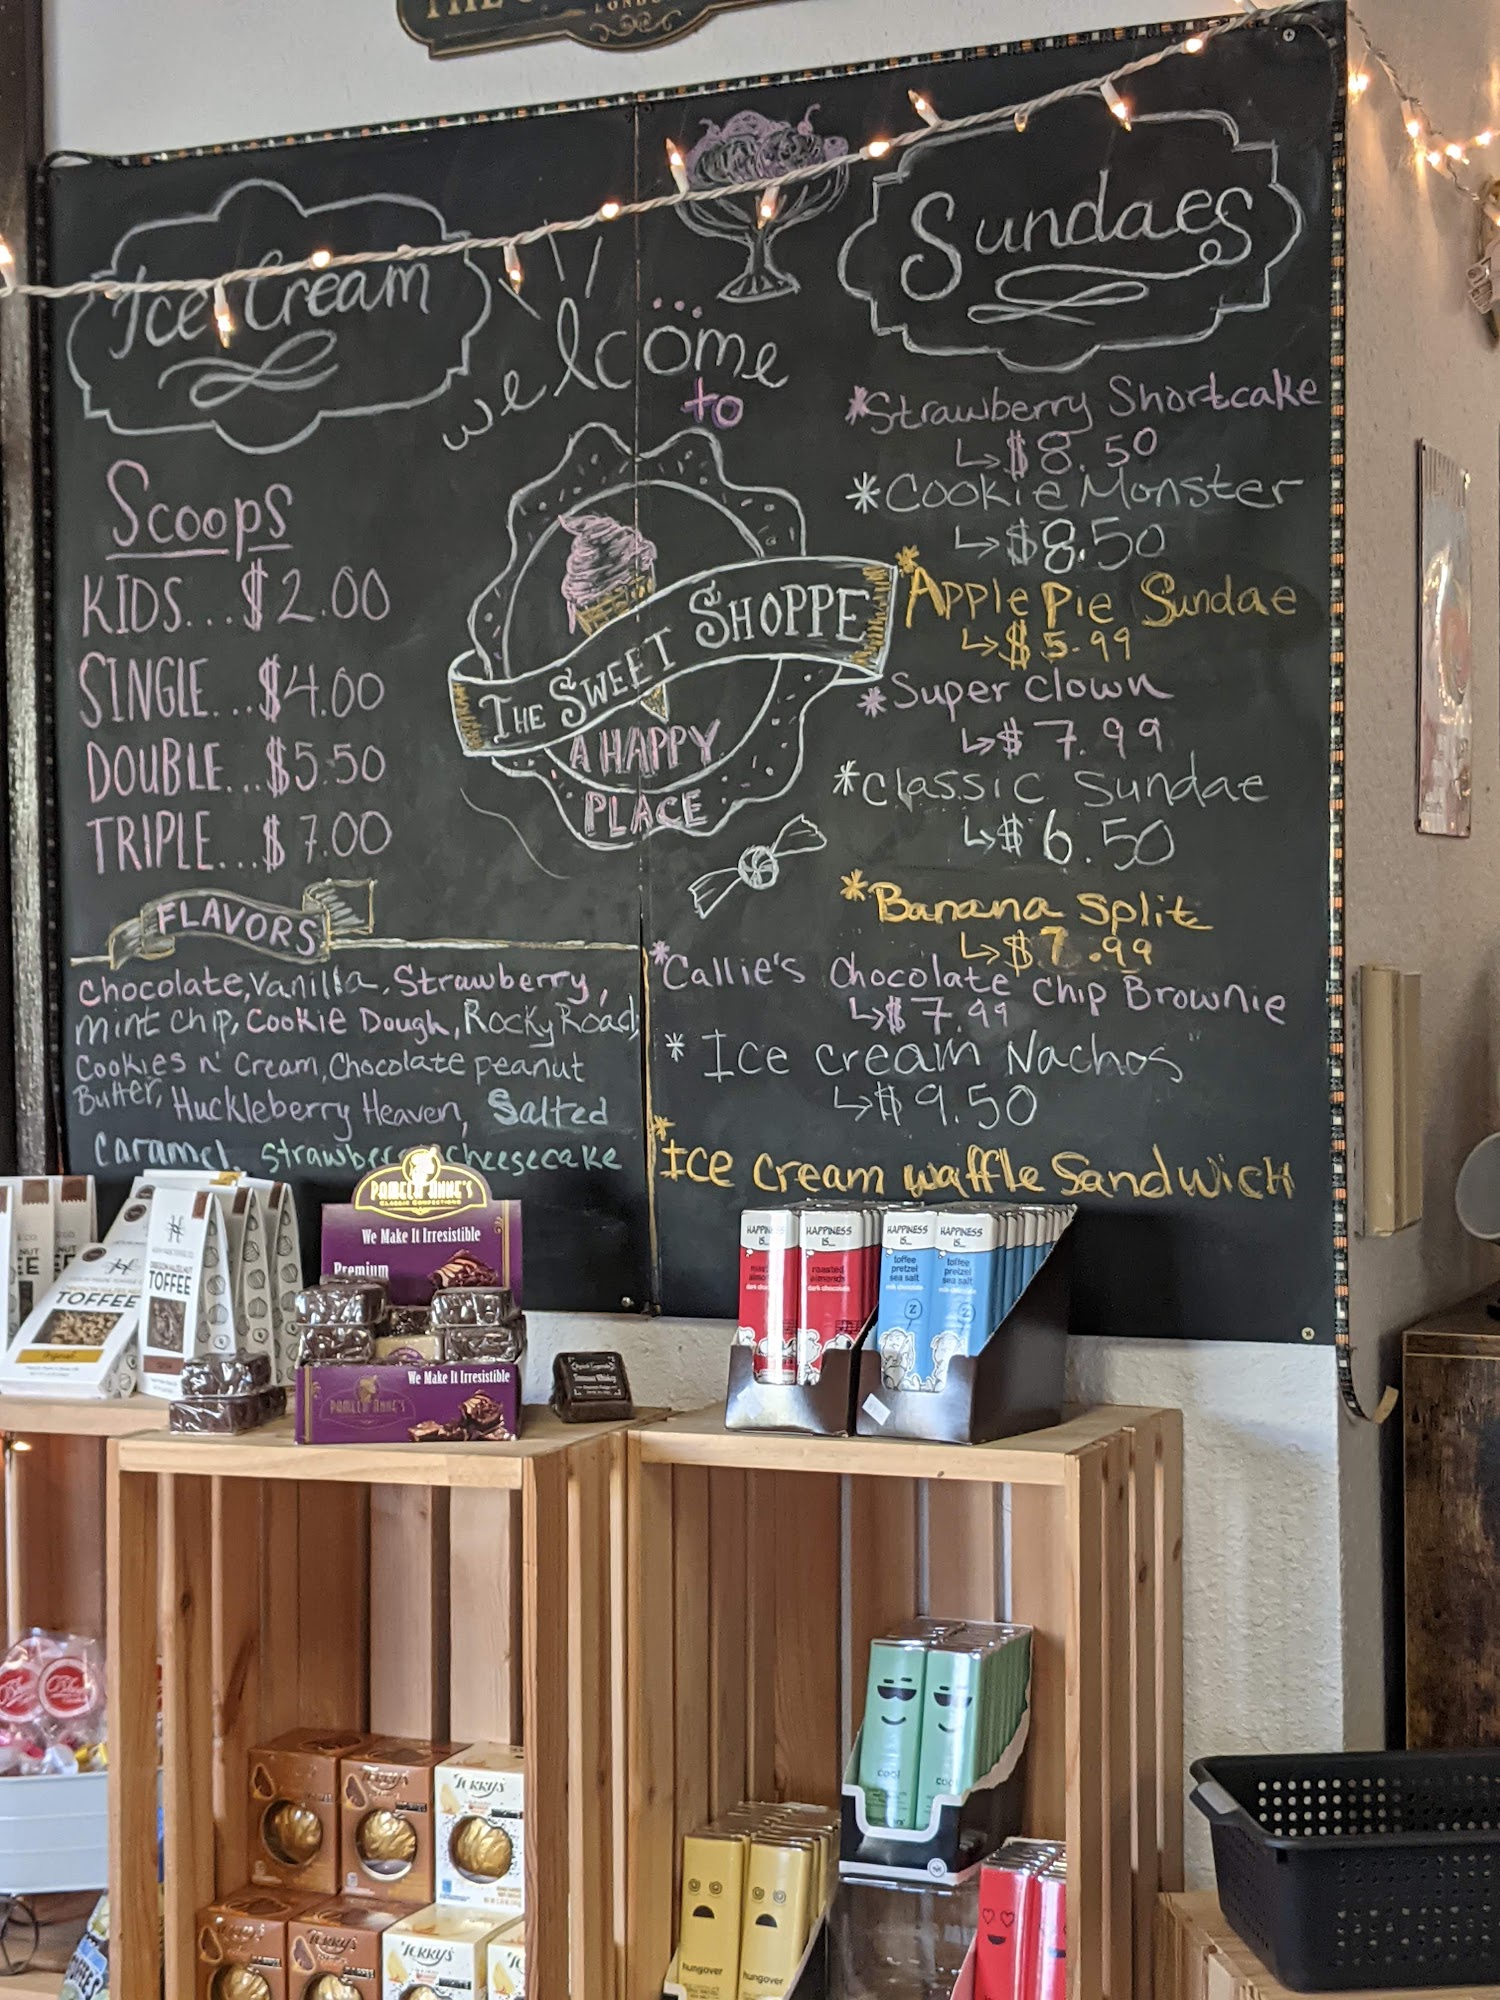 LONDON
Ice Cream
Scoops
KIDS...$2.00
SINGLE...$4.00
DOUBLE...$5.50
TRIPLE...$7.00
FLAVORS
Chocolate, Vanilla, Strawberry,
mint chip, Cookie Dough, Rocky Road,
Cookies n' Cream, Chocolate peanut
Butter, Huckleberry Heaven, Salted
Caramel, Strawberry cheesecake
welcome
to
THE SWEET SHOPPE
A HAPPY
PLACE
Sundaes
*Strawberry Shortcake
↳$8.50
*Cookie Monster
↳$8.50
*Apple Pie Sundae
↳$5.99
*Super Clown
↳$7.99
*Classic Sundae
↳$6.50
*Banana Split
↳$7.99
*Callie's Chocolate Chip Brownie
↳$7.99
*Ice Cream Nachos
↳$9.50
*Ice Cream Waffle Sandwich
TOFFEE
Original
OREGON HAZELNUT
TOFFEE
PAMELA ANNE'S
CLASSIC CONFECTIONS
We Make It Irresistible
Premium
We Make It Irresistible
PAMELA ANNE'S
Tennessee Whiskey
HAPPINESS
IS...
roasted
almonds
dark chocolate
HAPPINESS
IS...
roasted
almonds
dark chocolate
HAPPINESS
IS...
toffee
pretzel
sea salt
milk chocolate
HAPPINESS
IS...
toffee
pretzel
sea salt
milk chocolate
cool
cool
TERRY'S
TERRY'S
hungover
hungover